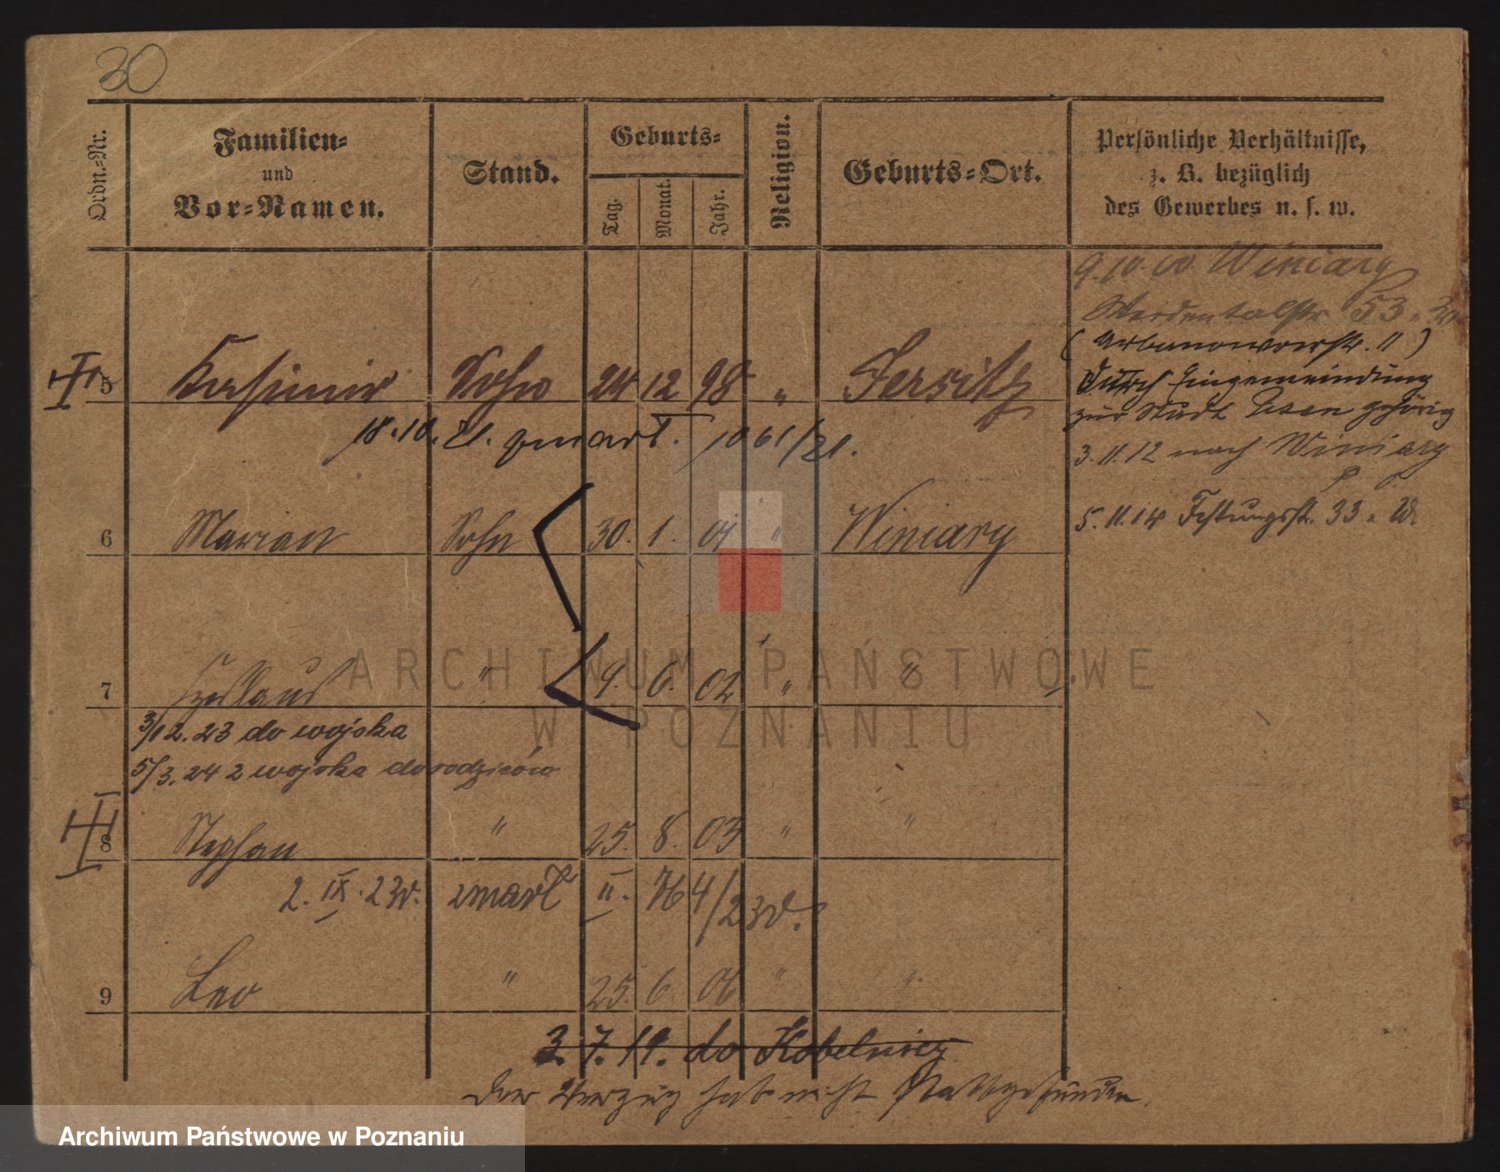 30
Ordn.-Nr.
Familien-
und
Vor-Namen.
Stand.
Geburts-
Tag.
Monat.
Jahr.
Religion.
Geburts-Ort.
Persönliche Verhältnisse,
z. B. bezüglich
des Gewerbes u. s. w.
9.10.00 Winiary
53
5 Kasimir Sohn 24 12 98 " Jersitz
18.10.21. zmarł. 1061/21.
durch Eingemeindung
zur Stadt Posen gehörig
3.11.12 nach Winiary
5.11.14 Festungsstr. 33
6 Marian Sohn 30. 1. 01 " Winiary
7 " 9. 6. 02 " "
3/12.23 do wojska
5/3.24 z wojska do rodziców
8 Stephan " 25. 8. 03 " "
2. IX. 23r. zmarł II. 764/23r.
9 Leo " 25. 6. 06 " "
3.7.19. do Kobelnicy
Der Verzug hat nicht stattgefunden.
ARCHIWUM PAŃSTWOWE
W POZNANIU
Archiwum Państwowe w Poznaniu